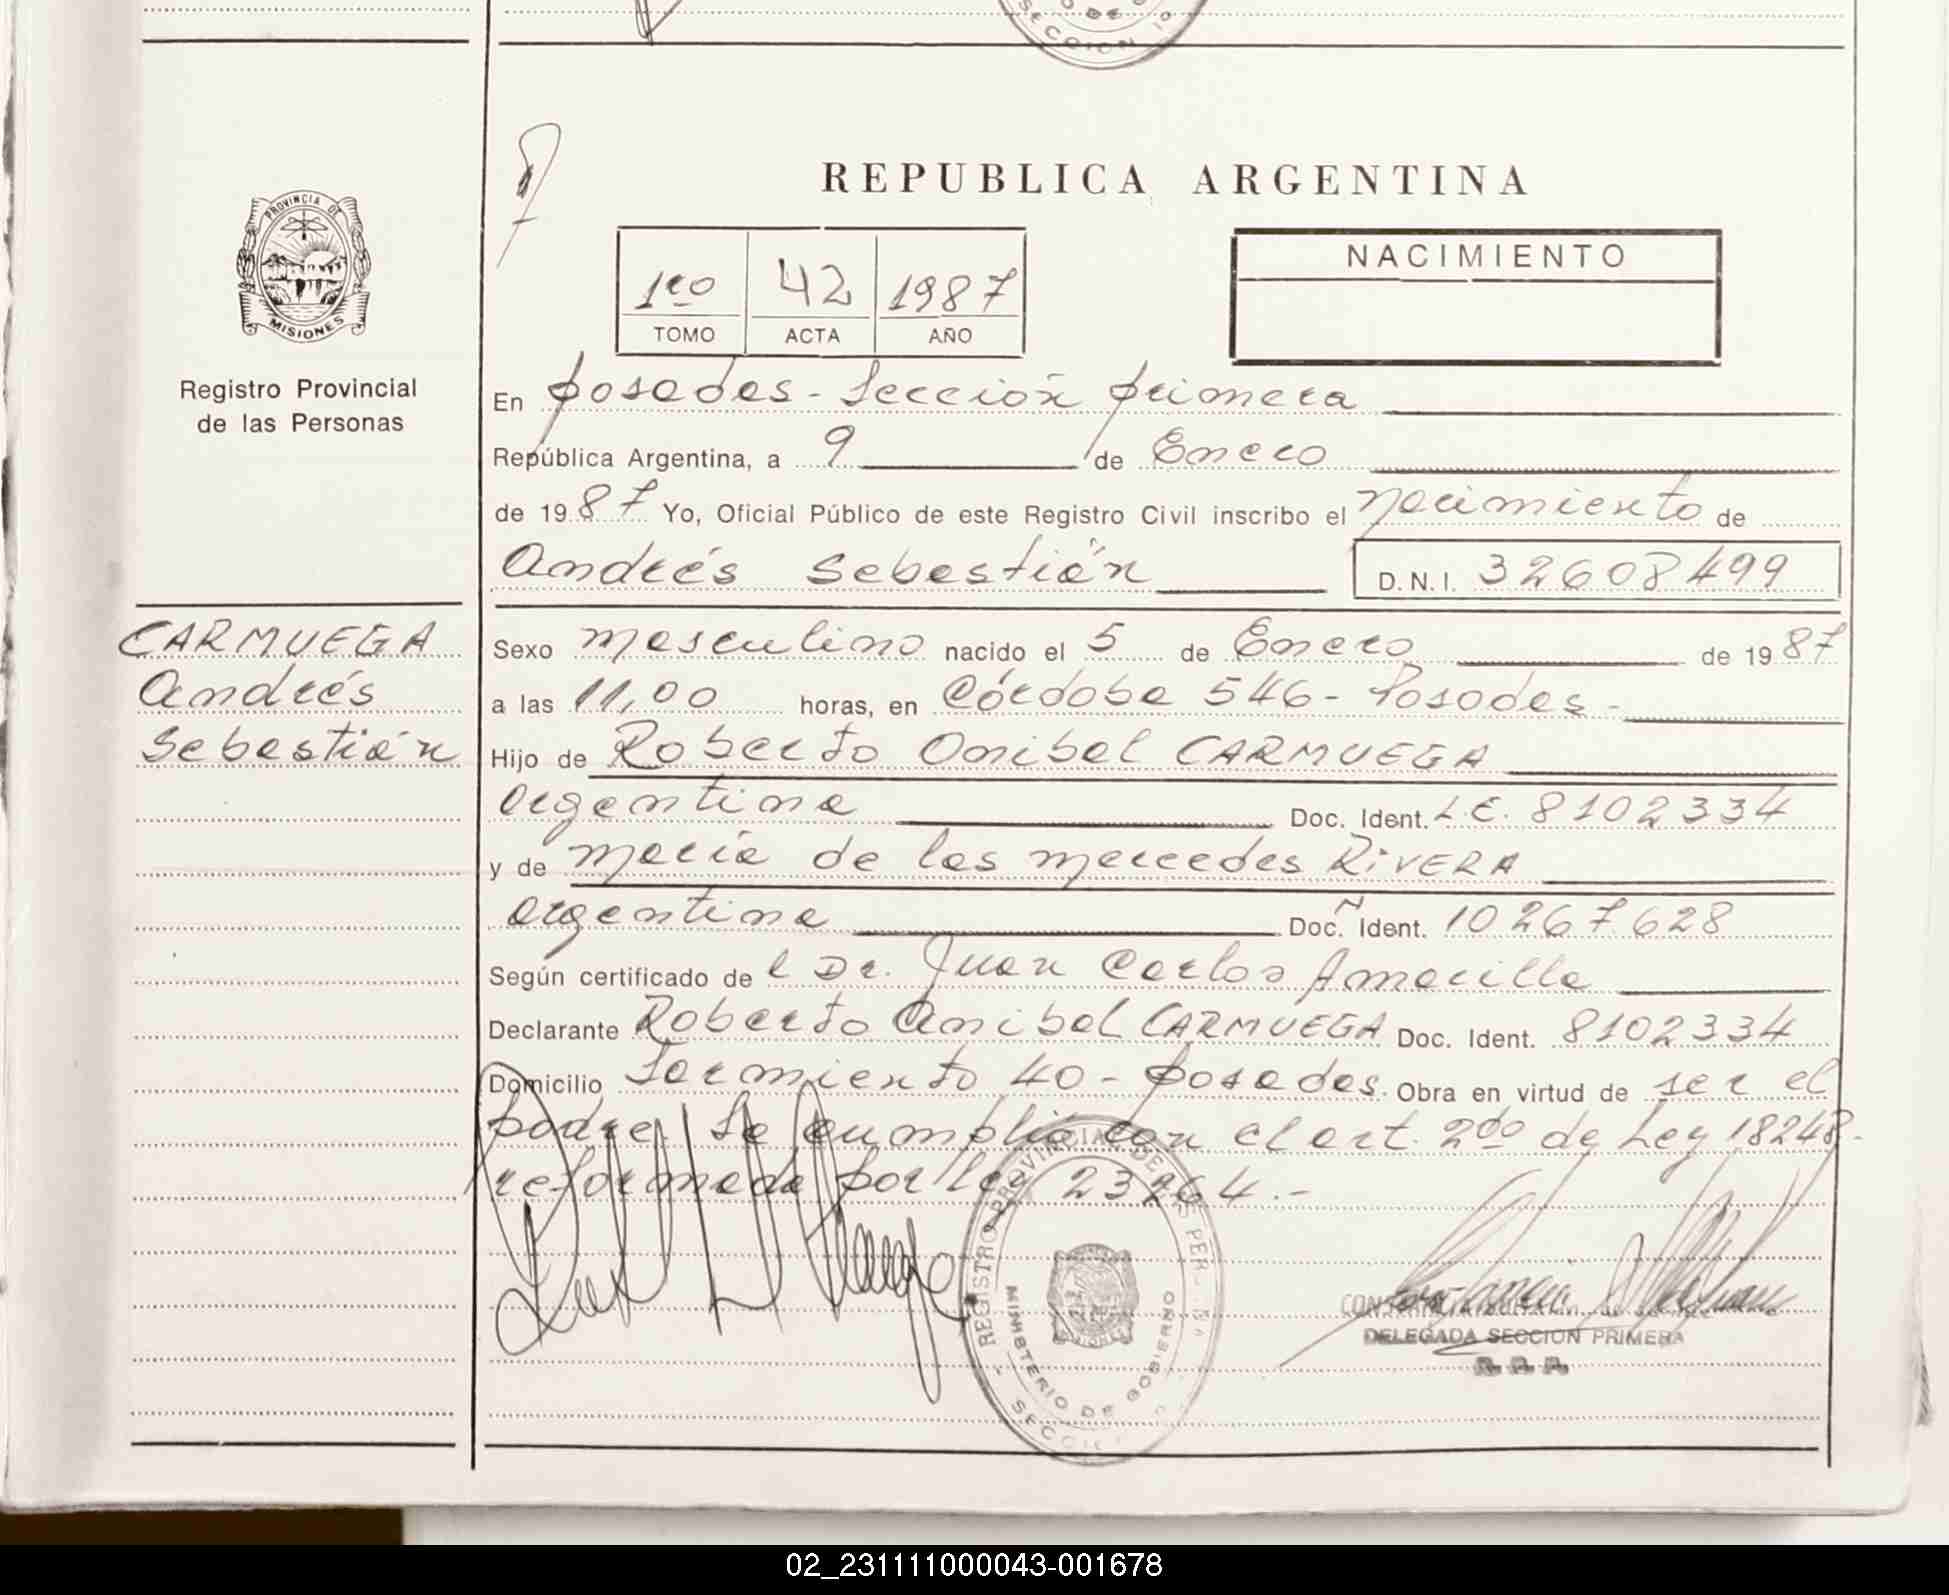 SECCION 1º
PROVINCIA DE
MISIONES
Registro Provincial
de las Personas
CARMUEGA
Andrés
Sebastián
REPUBLICA ARGENTINA
1ro 42 1987
TOMO ACTA AÑO
NACIMIENTO
En Posadas - Sección primera
República Argentina, a 9 de Enero
de 1987 Yo, Oficial Público de este Registro Civil inscribo el Nacimiento de
Andrés Sebastián D.N.I. 32608499
Sexo masculino nacido el 5 de Enero de 1987
a las 11,00 horas, en Córdoba 546 - Posadas -
Hijo de Roberto Anibal CARMUEGA
argentina Doc. Ident. L.E. 8102334
y de María de las Mercedes RIVERA
argentina Doc. Ident. 10.267.628
Según certificado de l Dr. Juan Carlos Amarilla
Declarante Roberto Anibal CARMUEGA Doc. Ident. 8102334
Domicilio Sarmiento 40 - Posadas. Obra en virtud de ser el
padre. Se cumplió con el art. 2do de Ley 18248 -
reformada por ley 23264.-
REGISTRO PROVINCIAL DE LAS PER
MINISTERIO DE GOBIERNO
SECCION
DELEGADA SECCION PRIMERA
R. P. P.
02_231111000043-001678